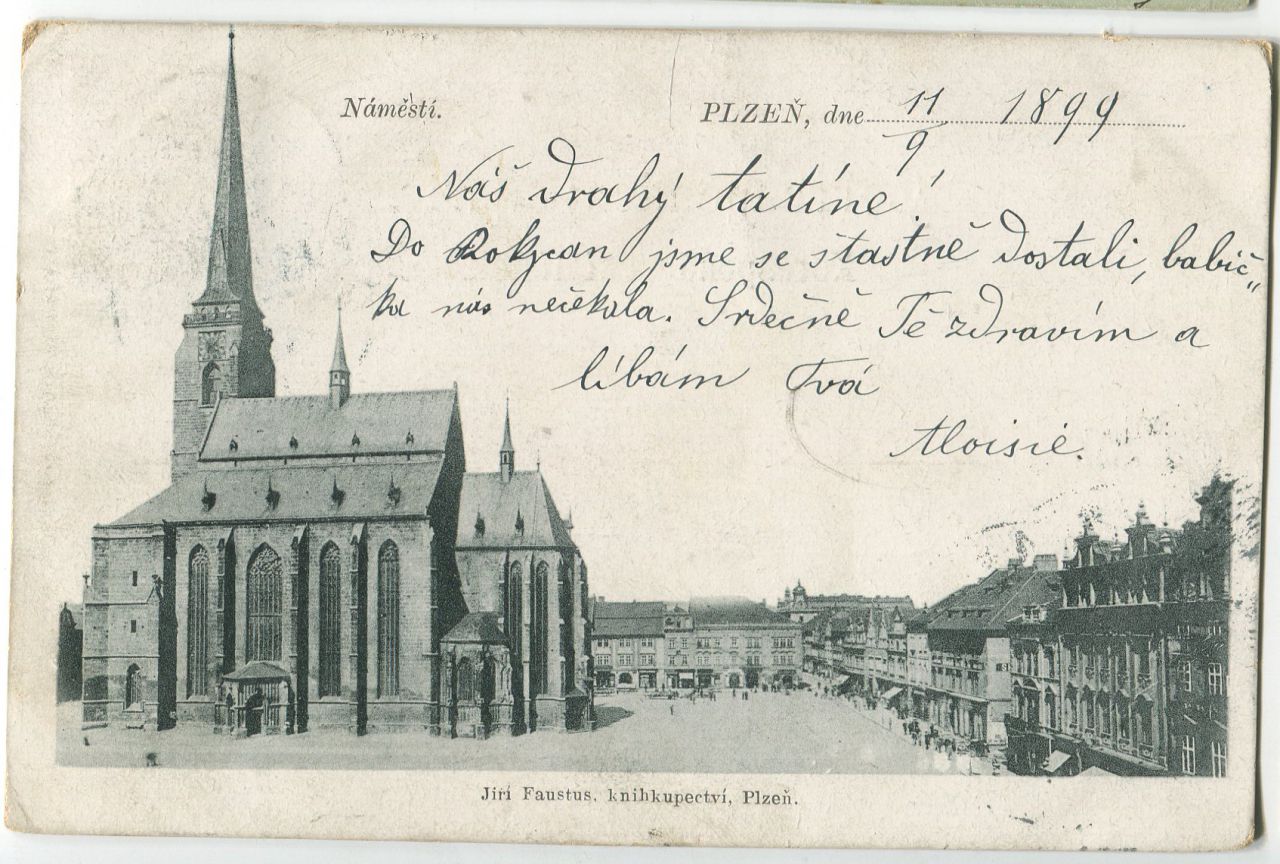 Náměstí.
PLZEŇ, dne 11/9 1899
Náš drahý tatíne!
Do Rokycan jsme se šťastně dostali, babič„
ka nás nečekala. Srdečně Tě zdravím a
líbám Tvá
Aloisie.
Jiří Faustus, knihkupectví, Plzeň.